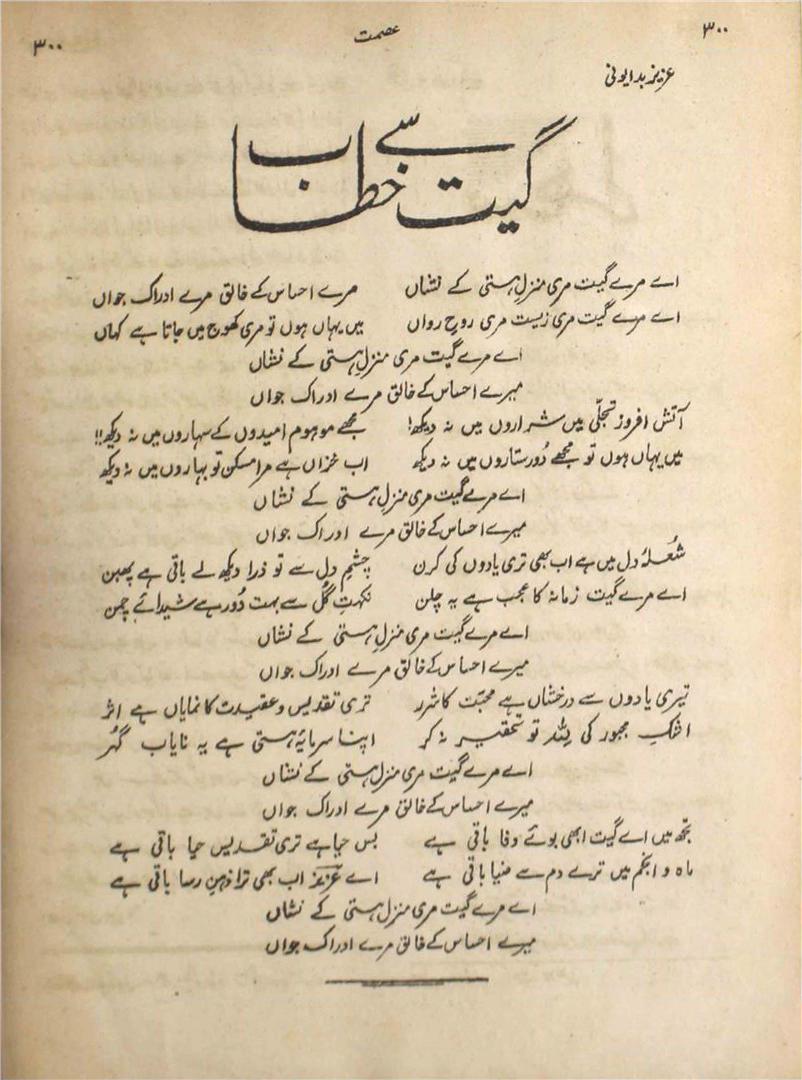 ۳۰۰ عصمت ۳۰۰
عزیز بدایونی
گیت سے خطاب
اے مرے گیت مری منزلِ ہستی کے نشاں مرے احساس کے خالق مرے ادراک جواں
اے مرے گیت مری زیست مری روحِ رواں میں یہاں ہوں تو مری کھوج میں جاتا ہے کہاں
اے مرے گیت مری منزلِ ہستی کے نشاں
میرے احساس کے خالق مرے ادراک جواں
آتش افروز تجلّی میں شراروں میں نہ دیکھ! مجھے موہوم امیدوں کے سہاروں میں نہ دیکھ!!
میں یہاں ہوں تو مجھے دُور ستاروں میں نہ دیکھ اب خزاں ہے مرا مسکن تو بہاروں میں نہ دیکھ
اے مرے گیت مری منزلِ ہستی کے نشاں
میرے احساس کے خالق مرے ادراک جواں
شُعلۂ دل میں ہے اب بھی تری یادوں کی کرن چشمِ دل سے تو ذرا دیکھ لے باقی ہے پھبن
اے مرے گیت زمانہ کا عجب ہے یہ چلن نکہتِ گُل سے بہت دُور ہے شیدائے چمن
اے مرے گیت مری منزلِ ہستی کے نشاں
میرے احساس کے خالق مرے ادراک جواں
تیری یادوں سے درخشاں ہے محبّت کا شرر تری تقدیس و عقیدت کا نمایاں ہے اثر
اشکِ مجبور کی لِلّٰہ تو تحقیر نہ کر اپنا سرمایۂ ہستی ہے یہ نایاب گہُر
اے مرے گیت مری منزلِ ہستی کے نشاں
میرے احساس کے خالق مرے ادراک جواں
تجھ میں اے گیت ابھی بوئے وفا باقی ہے بس حیا ہے تری تقدیس حیا باقی ہے
ماہ و انجم میں ترے دم سے ضیا باقی ہے اے عزیز اب بھی ترا ذہنِ رسا باقی ہے
اے مرے گیت مری منزلِ ہستی کے نشاں
میرے احساس کے خالق مرے ادراک جواں